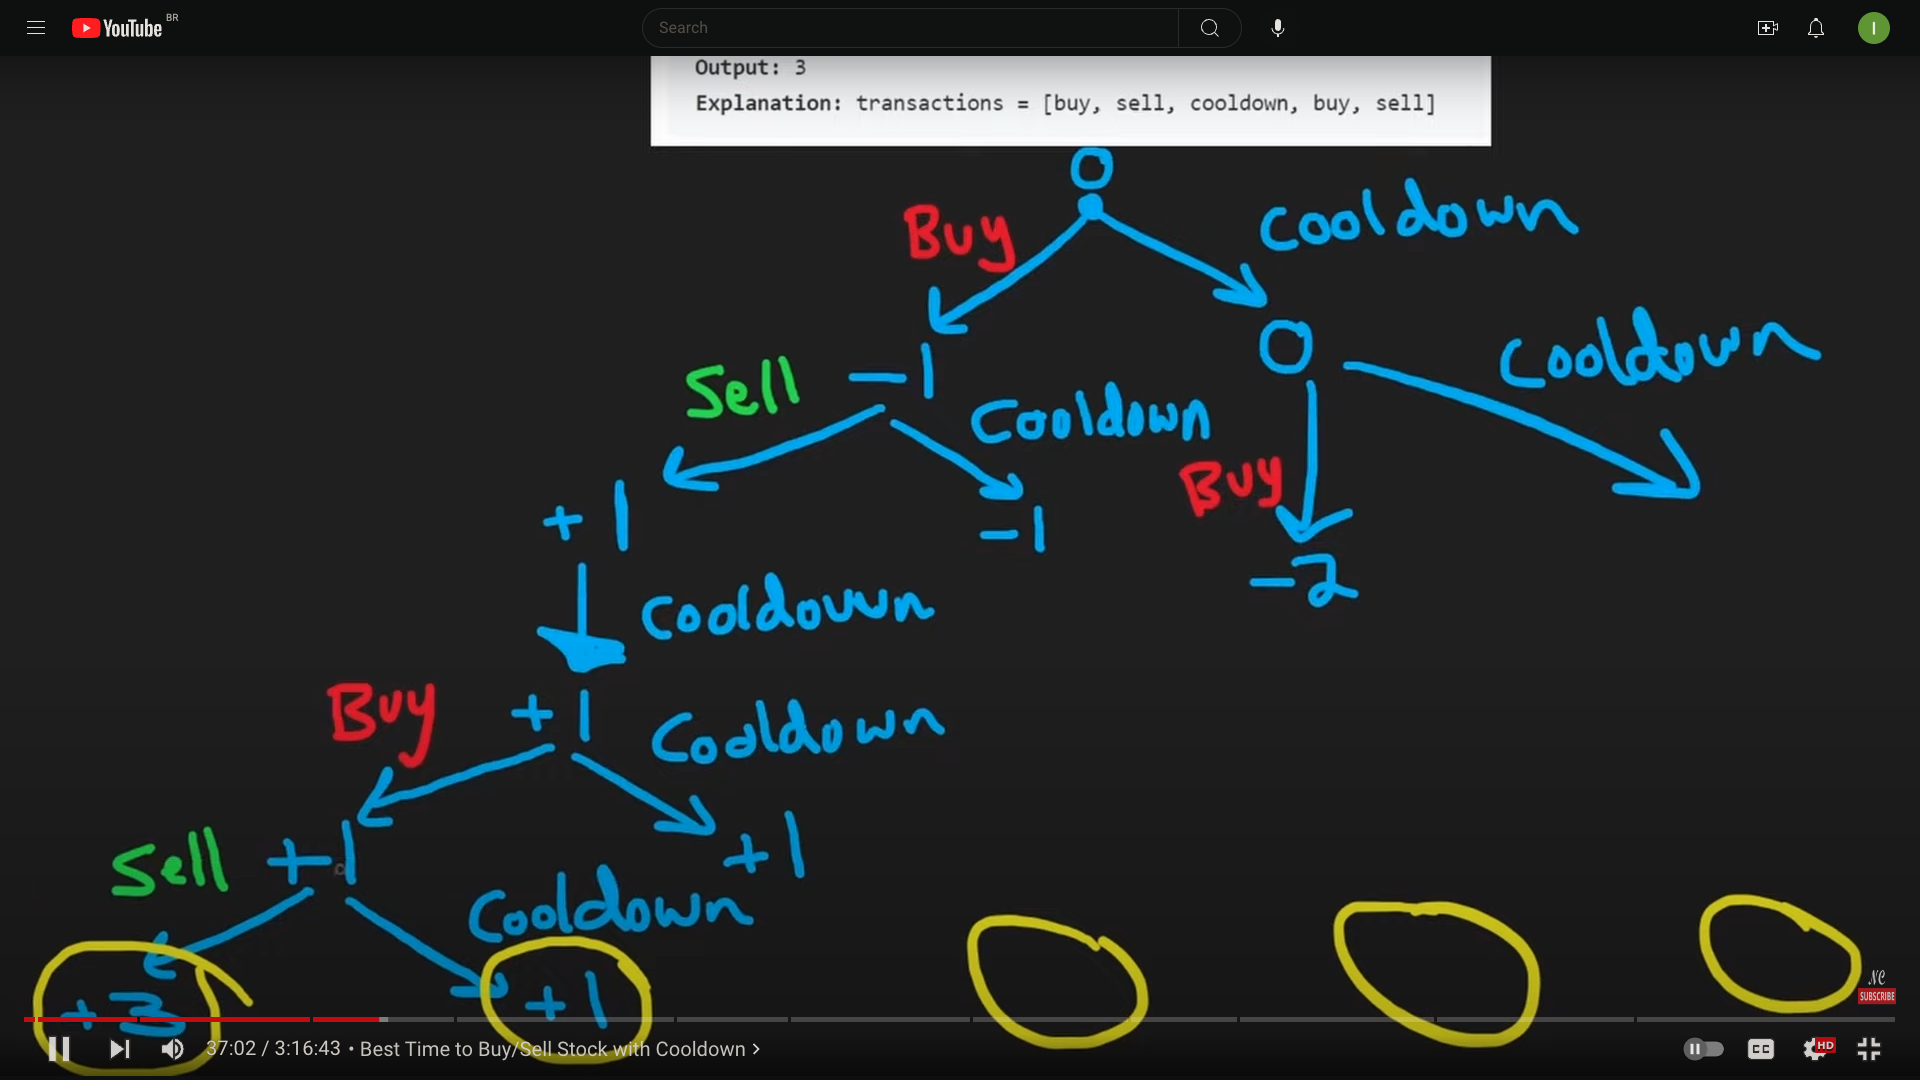 YouTube BR
Search
I
Output: 3
Explanation: transactions = [buy, sell, cooldown, buy, sell]
0
Buy
Cooldown
Sell
-1
Cooldown
0
Cooldown
+1
-1
Buy
-2
Cooldown
Buy
+1
Cooldown
Sell
+1
Cooldown
+1
+3
+1
NC
SUBSCRIBE
37:02 / 3:16:43 • Best Time to Buy/Sell Stock with Cooldown >
CC
HD